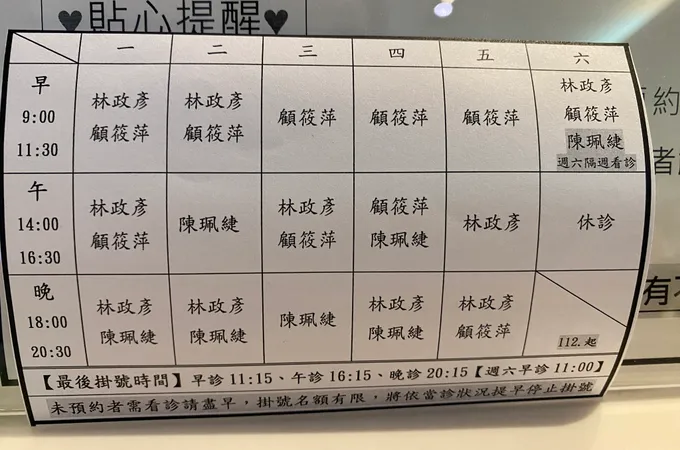 ♥貼心提醒♥
一 二 三 四 五 六
早 9:00 11:30
林政彥 林政彥 顧筱萍 顧筱萍 顧筱萍 林政彥
顧筱萍 顧筱萍 顧筱萍
陳珮緁
週六隔週看診
午 14:00 16:30
林政彥 陳珮緁 林政彥 顧筱萍 林政彥 休診
顧筱萍 顧筱萍 陳珮緁
晚 18:00 20:30
林政彥 林政彥 陳珮緁 林政彥 林政彥
陳珮緁 陳珮緁 陳珮緁 顧筱萍
112.起
【最後掛號時間】早診 11:15、午診 16:15、晚診 20:15【週六早診 11:00】
未預約者需看診請盡早，掛號名額有限，將依當診狀況提早停止掛號
約
者
有